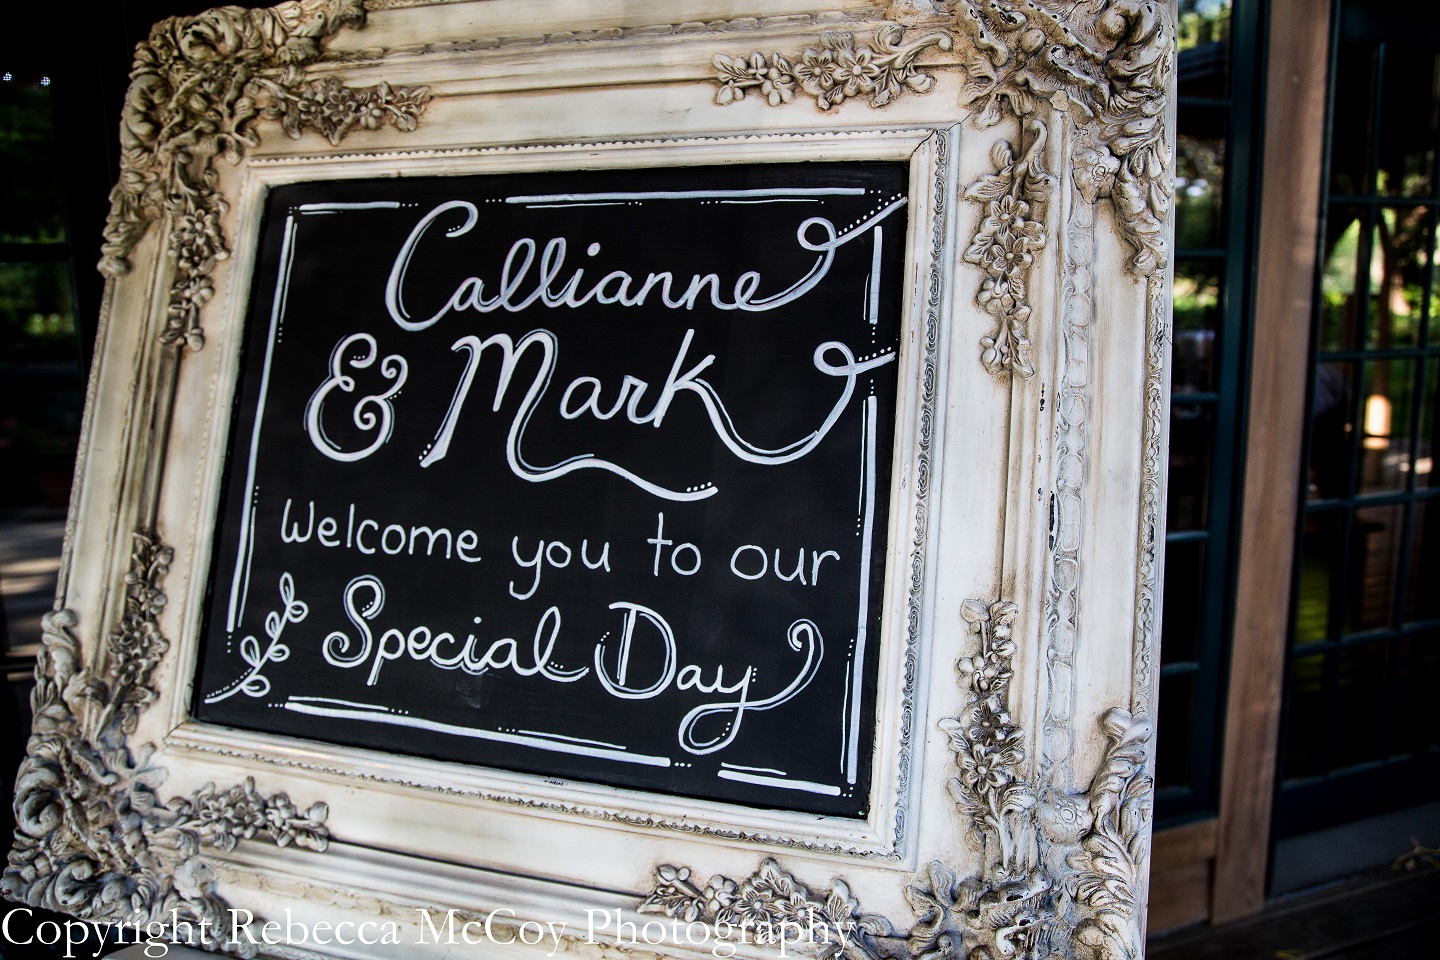 Callianne
& Mark
Welcome you to our
Special Day
Copyright Rebecca McCoy Photography